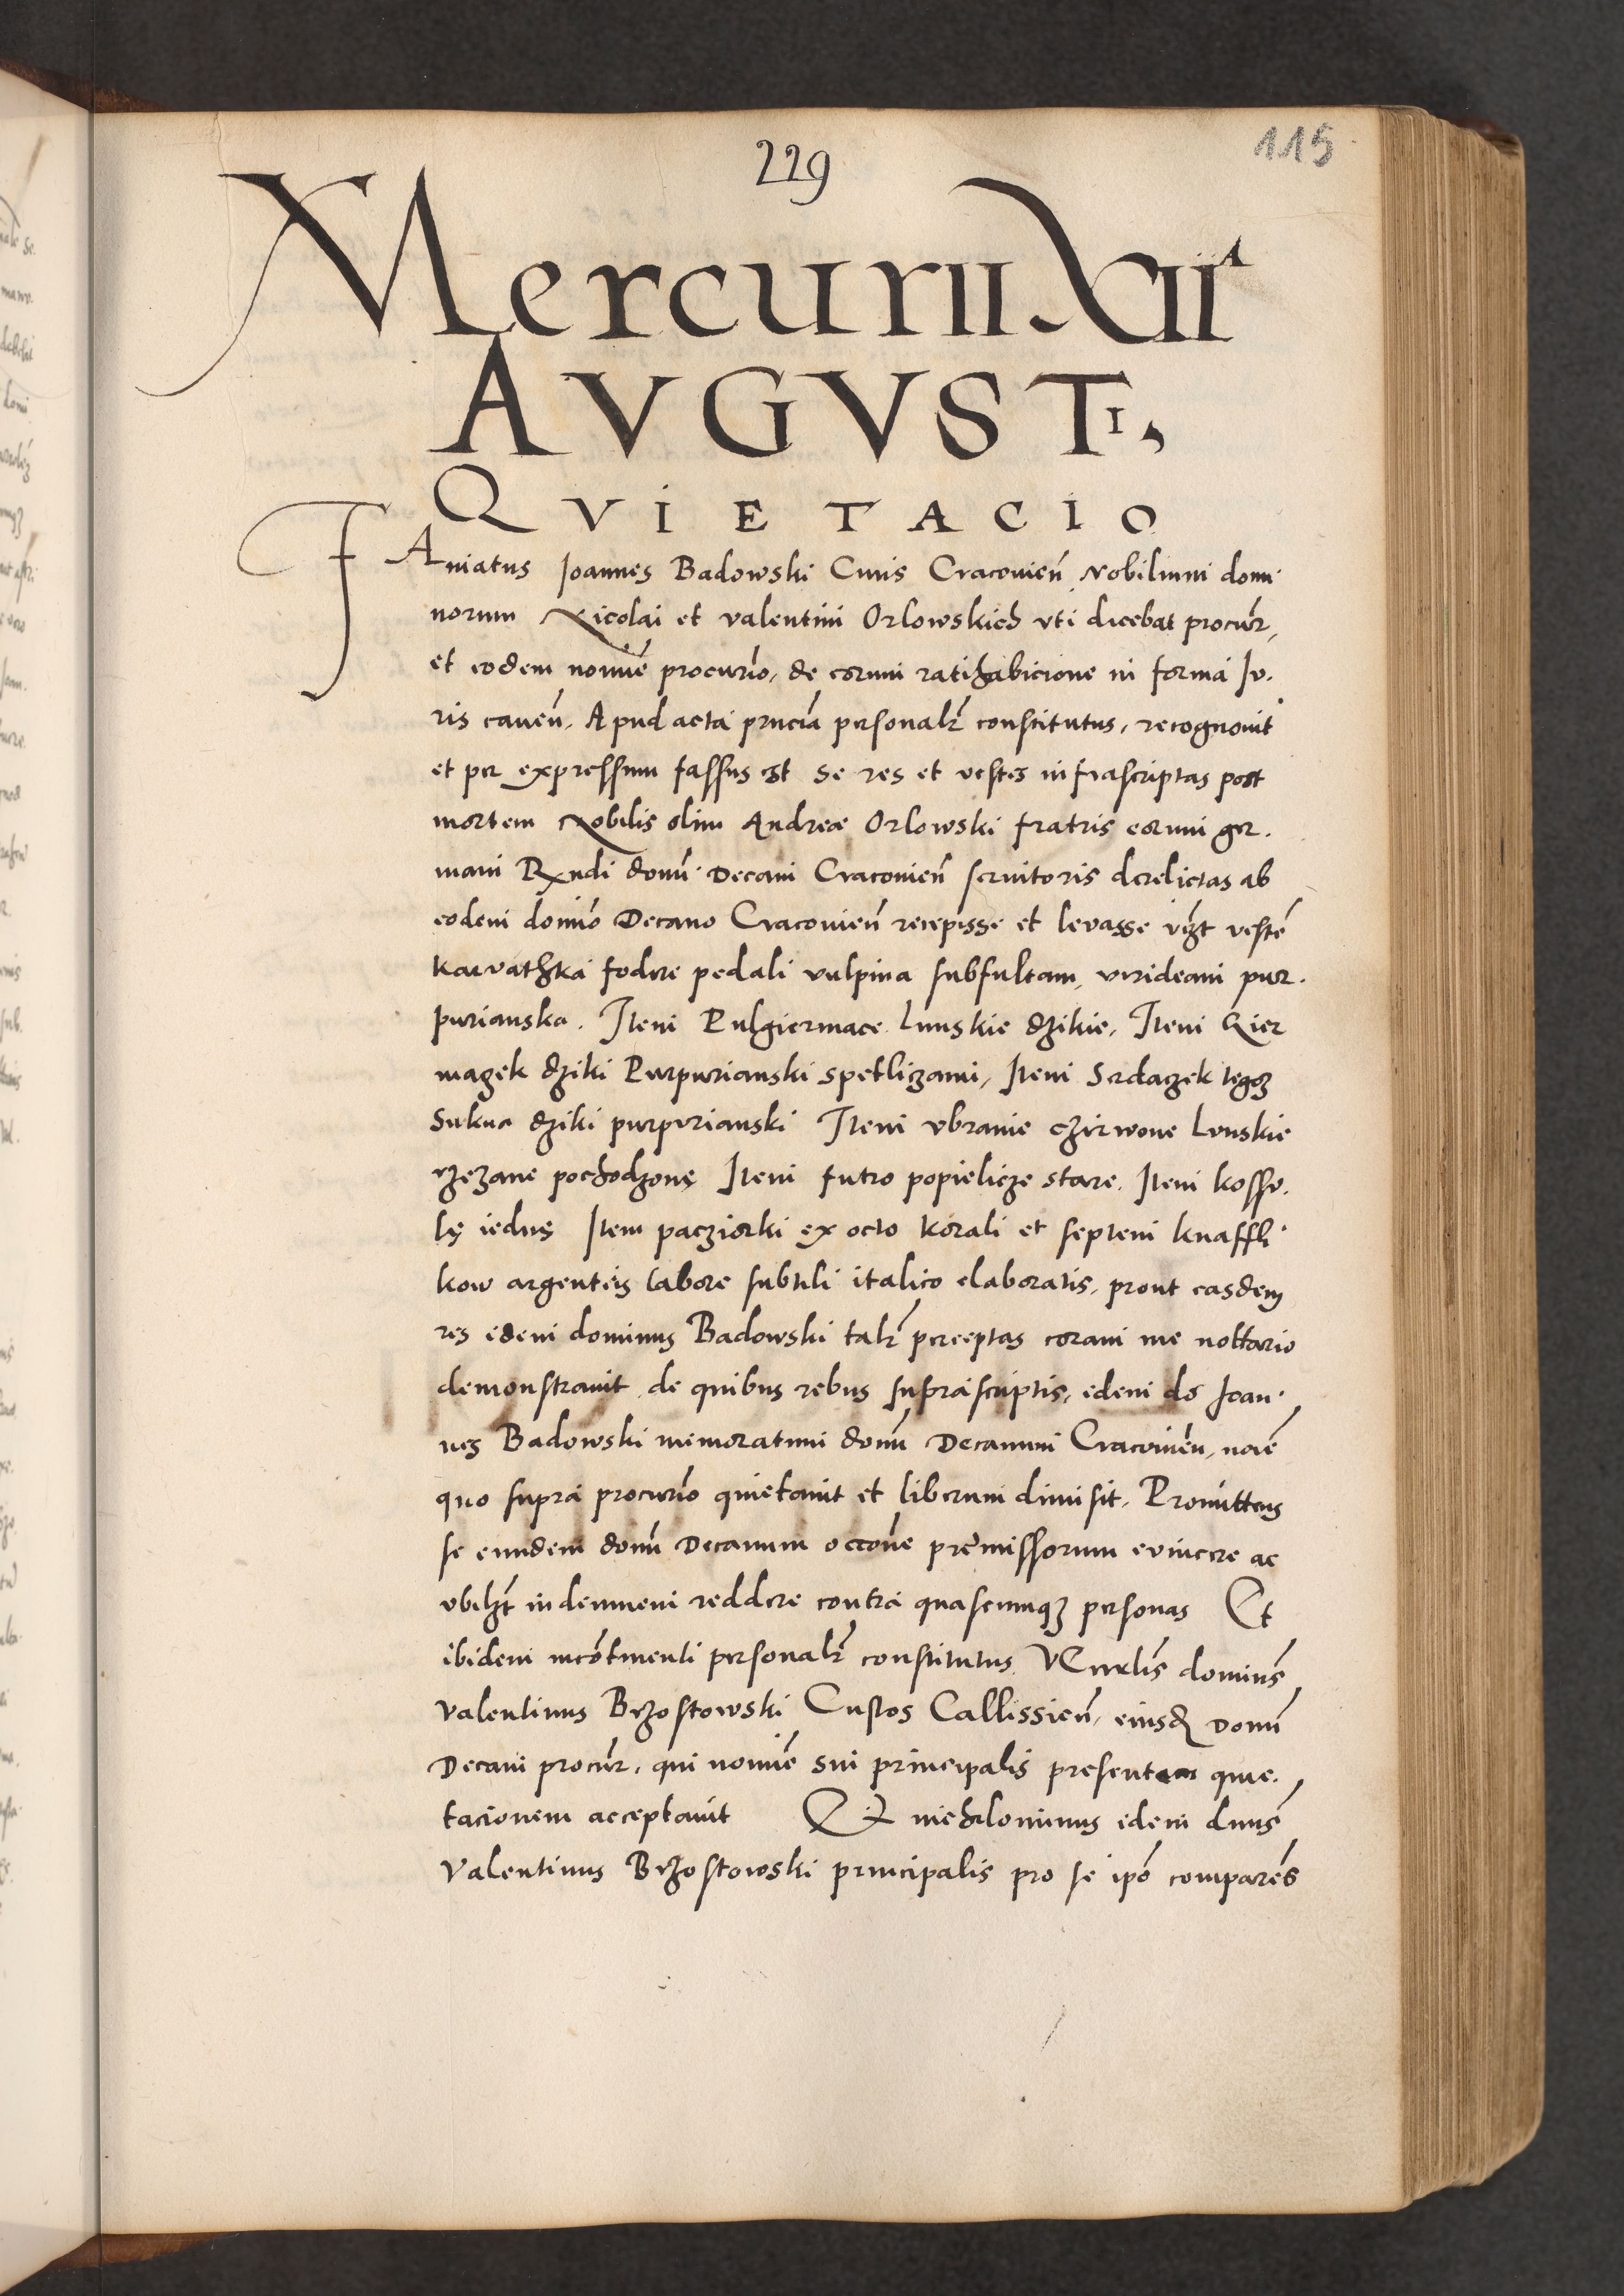 229
115
Mercurii XIIa
AVGVSTI,
QVIETACIO
FAmatus Joannes Badowski Civis Cracovien̄ Nobilium domi
norum Nicolai et Valentini Orlowskich vti dicebat procur̄,
et eodem nomīe procurīo, de eorum ratihabicione in forma Ju.
ris caven̄. Apud acta pn̄cia personalr̄ constitutus, recognovit
et per expressum fassus est se res et vestes infrascriptas post
mortem Nobilis olim Andreæ Orlowski fratris eorum ger.
mani Rx̄ndi domī Decani Cracovien̄ servitoris derelictas ab
eodem domīo Decano Cracovien̄ recepisse et levasse vīzt vestē
karvathka fodere pedali vulpina subfultam, virideam pur.
purianska. Item Pulgiermace Lunskie dzikie, Item Gier
mazek dziki Purpurianski spetliczami, Item Serdaczek tegoz
Sukna dziki purpurianski Item vbranie czirwone Lunskie
rzezane pochodzonę Item futro popielicze stare. Item kossu.
lę iednę Item pacziorki ex octo korali et septem knaffli
kow argenteis labore subtili italico elaboratis, prout easdem
res idem dominus Badowski talr̄ perceptas coram me nottario
demonstravit, de quibus rebus suprascriptis, idem ds Joan.
nes Badowski memoratum domī Decanum Cracovien̄, noīe
quo supra procurīo quietavit et liberum dimisit, Promittens
se eundem domī Decanum occone premissorum evincere ac
vbilzt indemnem reddere contra quascumqz personas Et
ibidem incontinenti personalr̄ constitutus Venerlis dominus
Valentinus Brzostowski Custos Callissien̄, eiusd domī
Decani procur̄, qui nomīe sui principalis presentem quie.
tacionem acceptavit Et nichilominus idem dnus
Valentinus Brzostowski principalis pro se ipō comparēs